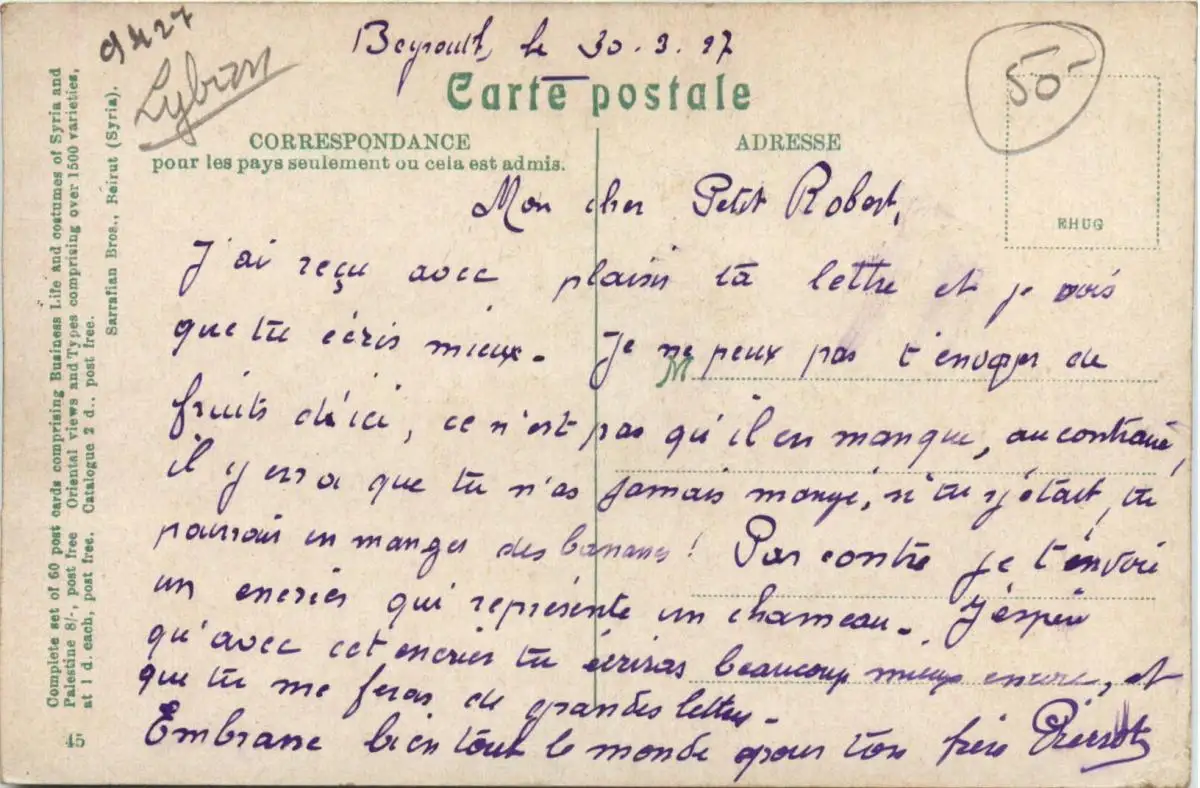 9427
Lybian
Beyrouth, le 30.3.27
50
Carte postale
CORRESPONDANCE
pour les pays seulement ou cela est admis.
ADRESSE
EHUG
Mon cher Petit Robert,
J'ai reçu avec plaisir ta lettre et je vois
que tu écris mieux. Je ne peux pas t'envoyer de
M
fruits d'ici, ce n'est pas qu'il en manque, au contraire,
il y en a que tu n'as jamais mangé, si tu y était, tu
pourrais en manger des bananes! Par contre je t'envoie
un encrier qui représente un chameau. J'espère
qu'avec cet encrier tu écriras beaucoup mieux encore, et
que tu me feras de grandes lettres.
Embrasse bien tout le monde pour ton frère Pierrot
Complete set of 60 post cards comprising Business Life and costumes of Syria and
Palestine 8/-, post free Oriental views and Types comprising over 1500 varieties,
at 1 d. each, post free. Catalogue 2 d., post free.
Sarrafian Bros., Beirut (Syria).
45